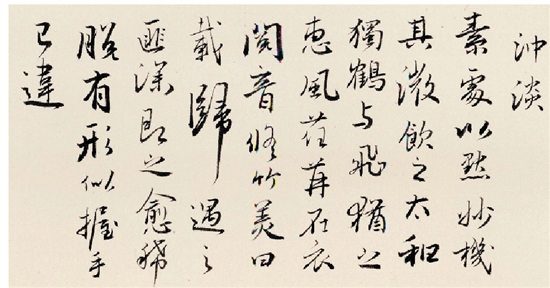 沖淡
素處以默妙機
其微飲之太和
獨鶴与飛猶之
惠風荏苒在衣
閱音修竹美曰
載歸遇之
匪深即之愈稀
脫有形似握手
已違